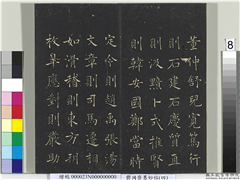 董仲舒兒寬篤行
則石建石慶質直
則汲黯卜式推賢
則韓安國鄭當時
定令則趙禹張湯
文章則司馬遷相
如滑稽則東方朔
枚皋應對則嚴助
8